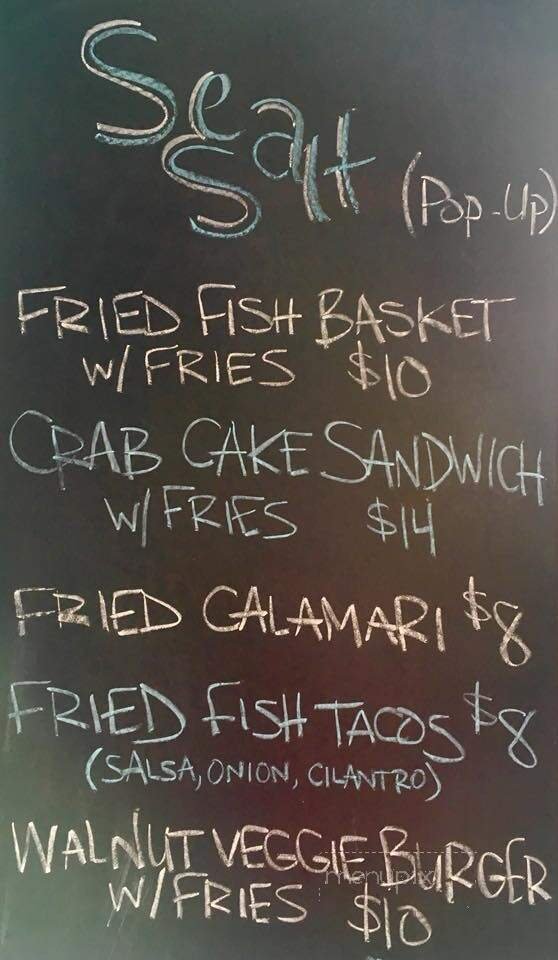 Sea
Salt
(Pop-Up)
FRIED FISH BASKET
W/FRIES $10
CRAB CAKE SANDWICH
W/FRIES $14
FRIED CALAMARI $8
FRIED FISH TACOS $8
(SALSA, ONION, CILANTRO)
WALNUT VEGGIE BURGER
menupix
W/FRIES $10